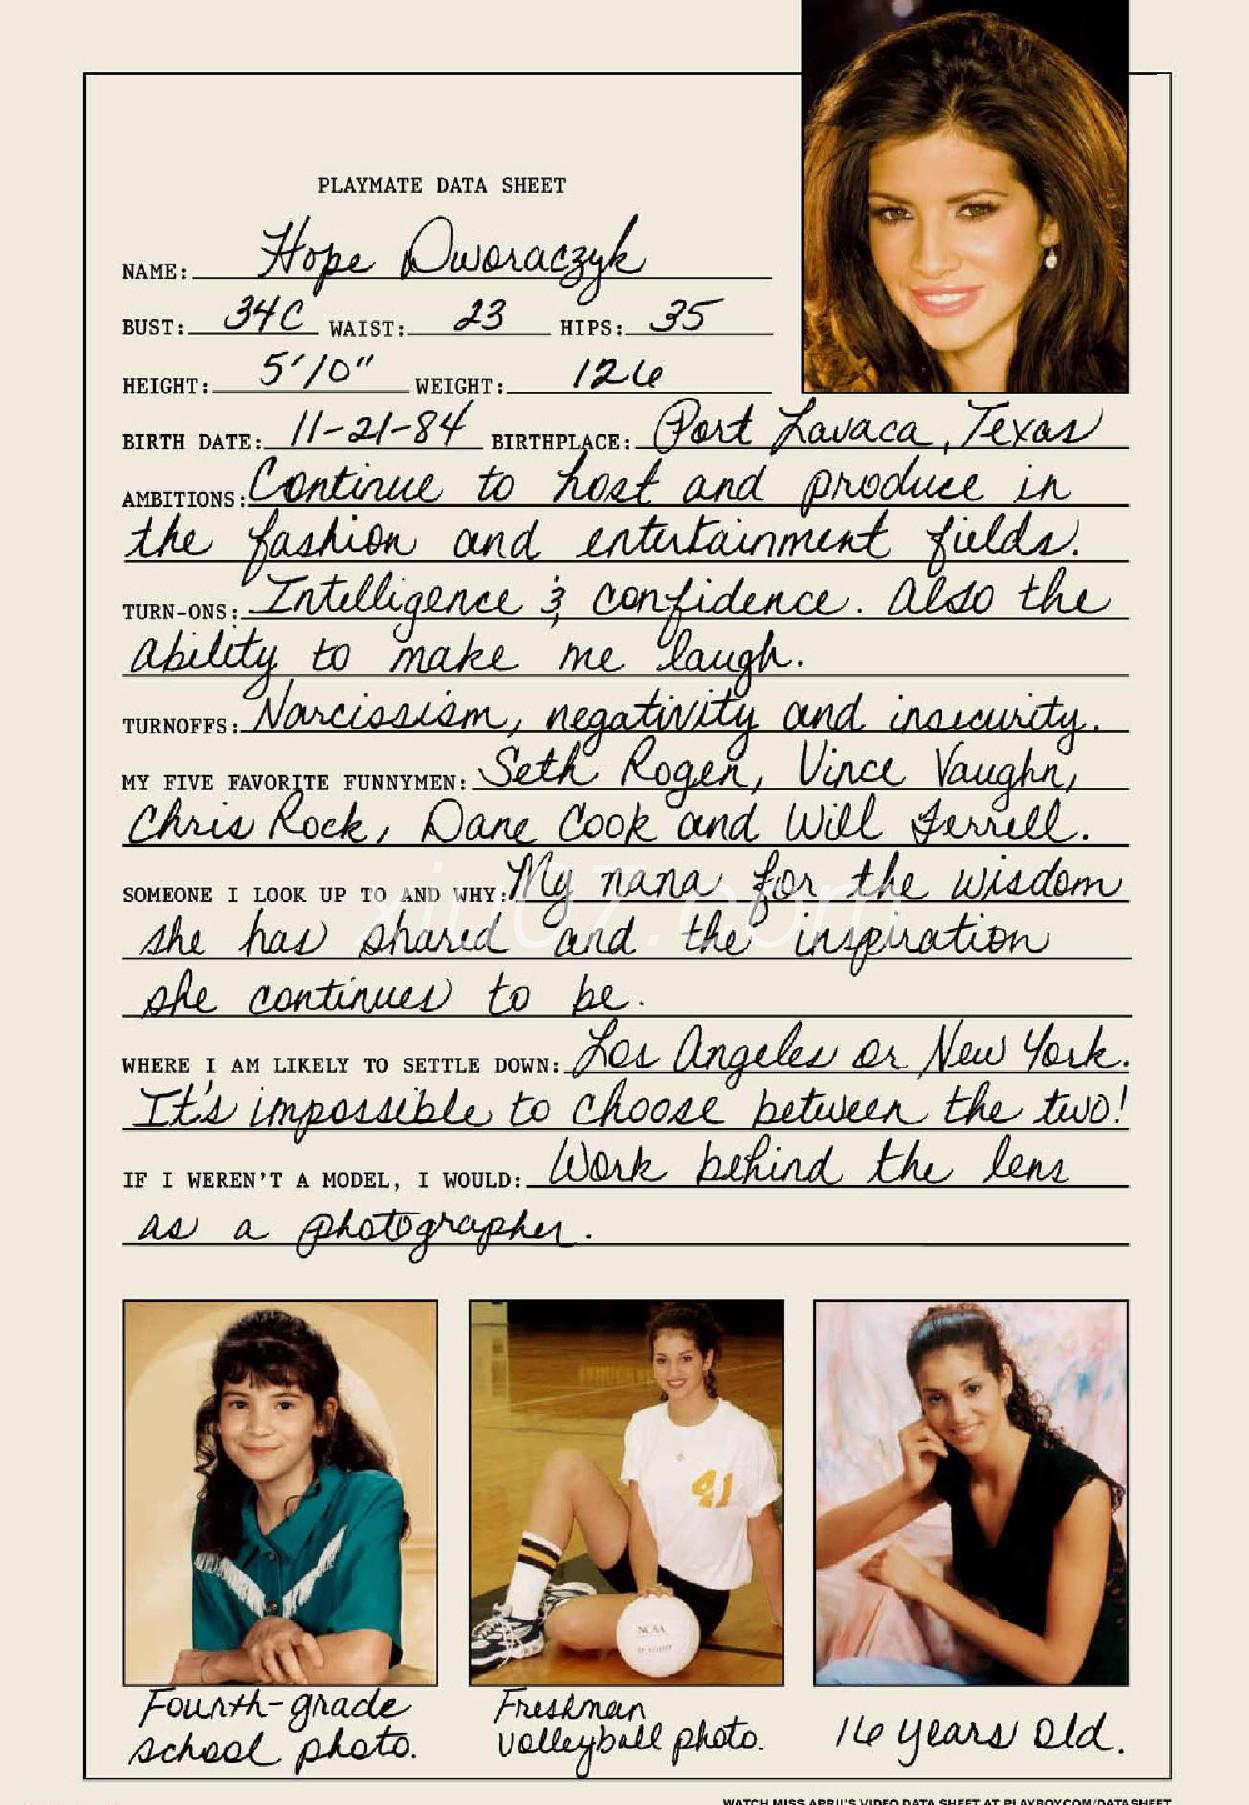 PLAYMATE DATA SHEET
NAME: Hope Dworaczyk
BUST: 34C WAIST: 23 HIPS: 35
HEIGHT: 5'10" WEIGHT: 126
BIRTH DATE: 11-21-84 BIRTHPLACE: Port Lavaca, Texas
AMBITIONS: Continue to host and produce in
the fashion and entertainment fields.
TURN-ONS: Intelligence & confidence. Also the
ability to make me laugh.
TURNOFFS: Narcissism, negativity and insecurity.
MY FIVE FAVORITE FUNNYMEN: Seth Rogen, Vince Vaughn,
Chris Rock, Dane Cook and Will Ferrell.
SOMEONE I LOOK UP TO AND WHY: My nana for the wisdom
she has shared and the inspiration
xiu07.com
she continues to be.
WHERE I AM LIKELY TO SETTLE DOWN: Los Angeles or New York.
It's impossible to choose between the two!
IF I WEREN'T A MODEL, I WOULD: Work behind the lens
as a photographer.
41
NCAA
Fourth-grade
school photo.
Freshman
volleyball photo.
16 years old.
WATCH MISS APRIL'S VIDEO DATA SHEET AT PLAYBOY.COM/DATASHEET